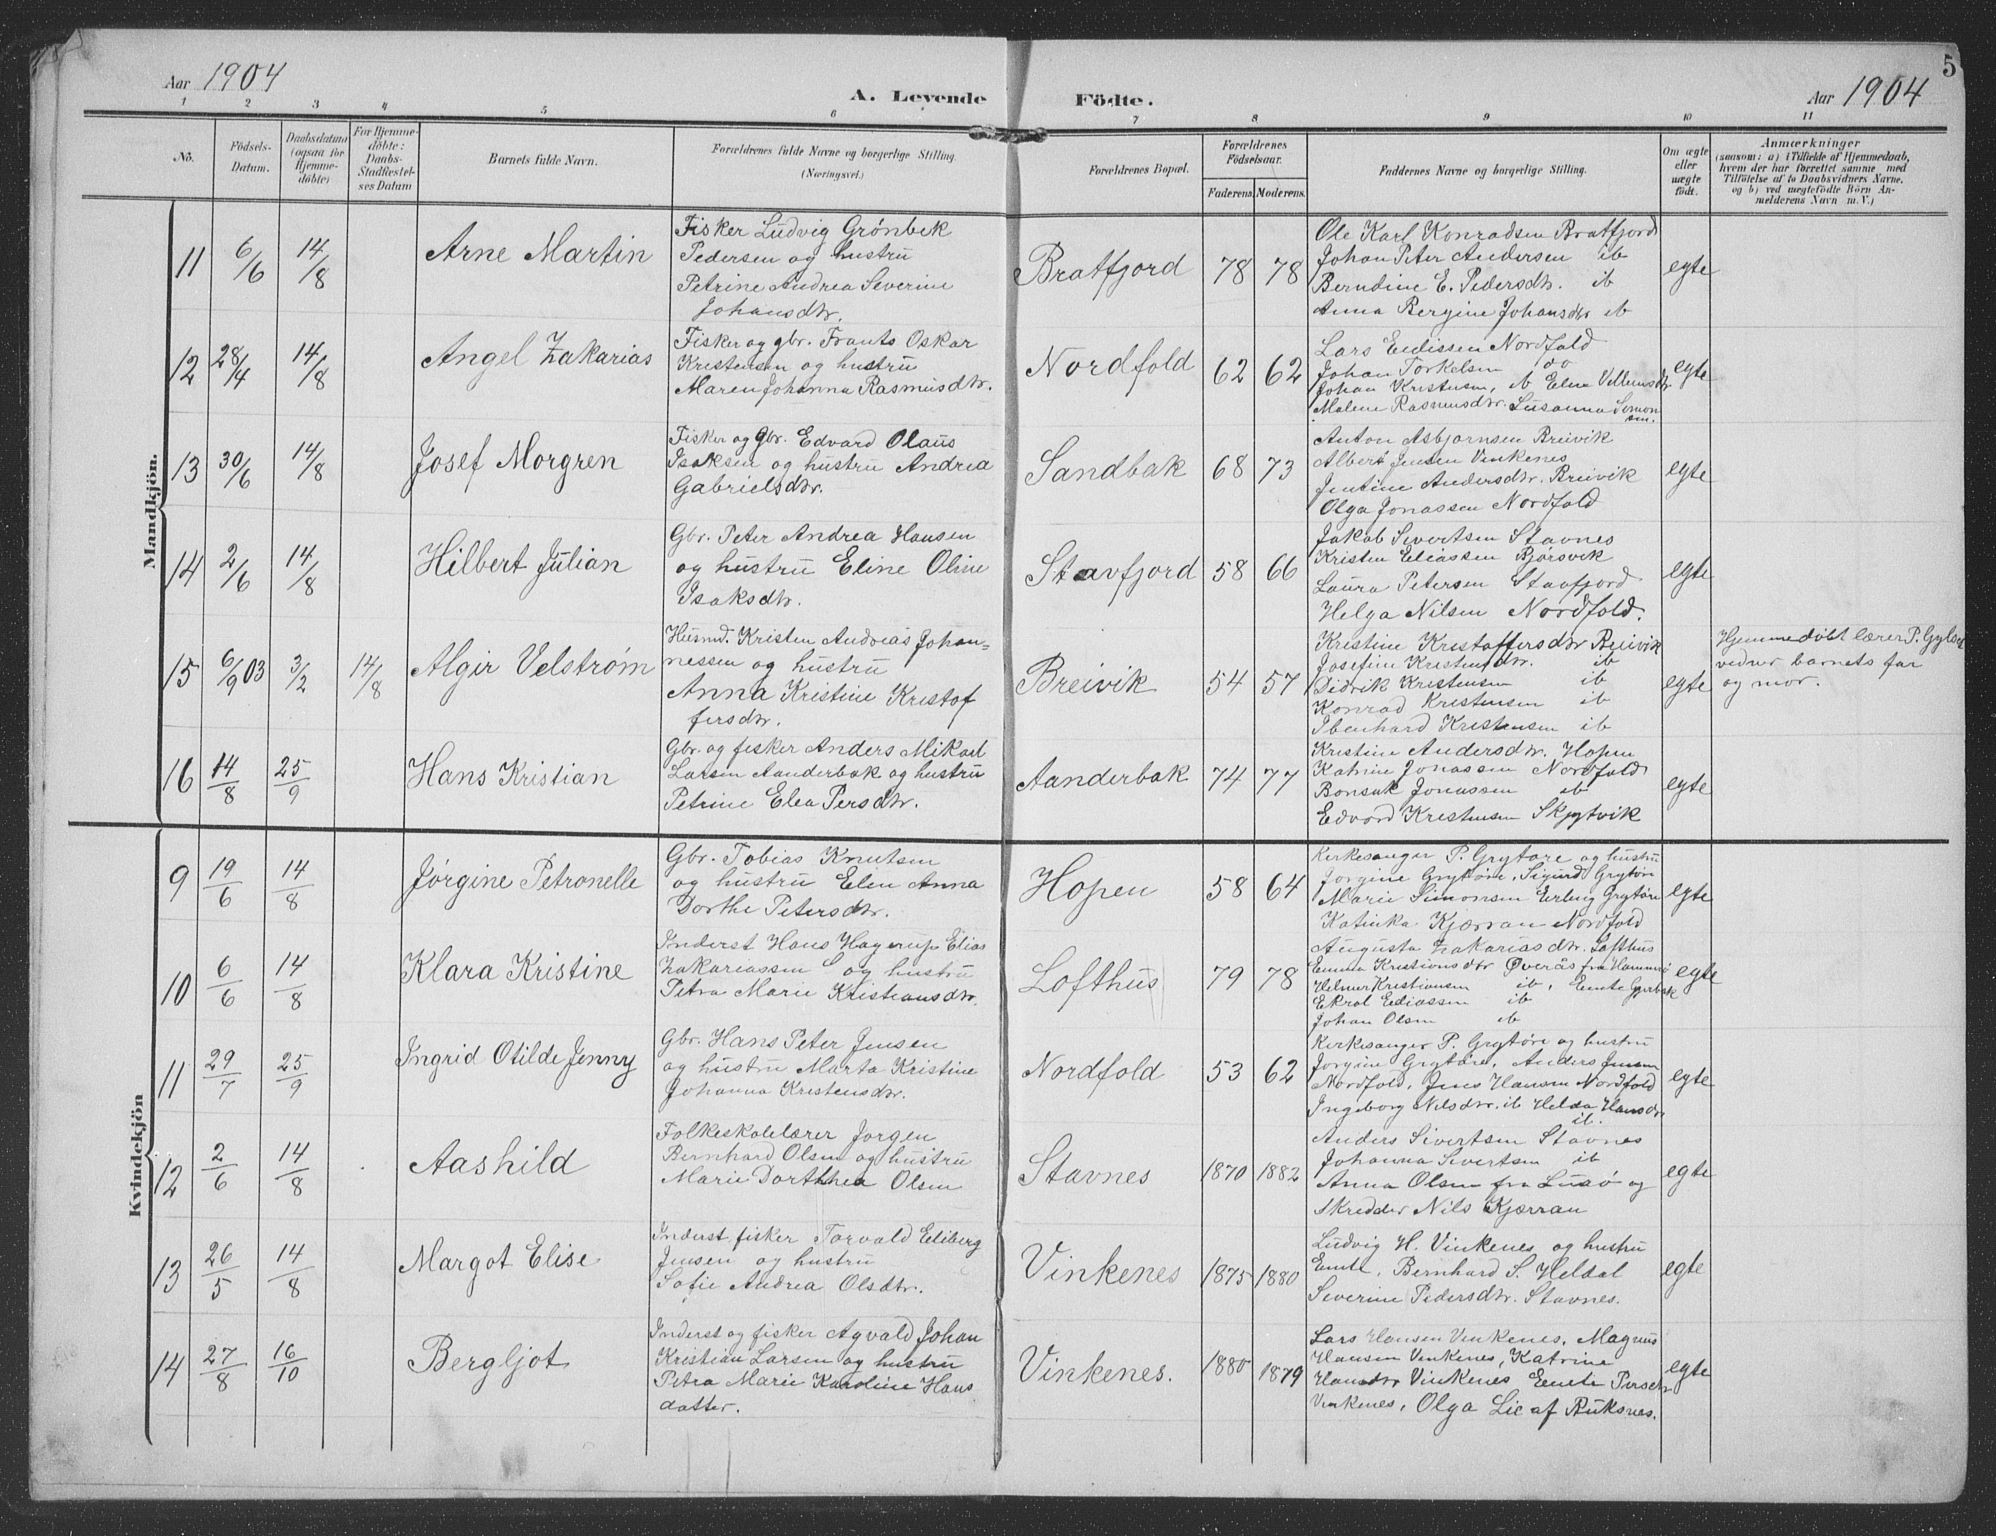 5
Aar 1904
A. Levende Födte.
Aar 1904
1 2 3 4 5 6 7 8 9 10 11
No.
Födsels-Datum.
Daabsdatum (ogsaa for Hjemme-döbte)
For Hjemme-döbte: Daabs-Stadfæstel-ses Datum
Barnets fulde Navn.
Forældrenes fulde Navne og borgerlige Stilling. (Næringsvei.)
Forældrenes Bopæl.
Forældrenes Födselsaar.
Faderens. Moderens.
Faddernes Navne og borgerlige Stilling.
Om ægte eller uægte födt.
Anmærkninger
(saasom: a) i Tilfælde af Hjemmedaab,
hvem der har forrettet samme med
Tilföielse af to Daabsvidners Navne.
og b) ved uægtefödte Börn An-
melderens Navn m. V.)
Mandkjön.
11 6/6 14/8 Arne Martin
Fisker Ludvig Grønbek
Pedersen og hustru
Petrine Andrea Severine
Johansdtr.
Bratfjord 78 78
Ole Karl Konradsen Bratfjord
Johan Peter Andersen ib
Berndine E. Pedersdtr. ib
Anna Bergine Johansdtr ib
egte
12 28/4 14/8 Angel Zakarias
Fisker og gbr. Frants Oskar
Kristensen og hustru
Maren Johanna Rasmusdtr.
Nordfold 62 62
Lars Eedissen Nordfold
Johan Torkelsen do
Johan Kristensen, ib Elen Vellumsdtr
Malene Rasmusdtr. Susanna Simon
sen.
egte
13 30/6 14/8 Josef Morgren
Fisker og Gbr. Edvard Olaus
Isaksen og hustru Andrea
Gabrielsdtr.
Sandbak 68 73
Anton Asbjørnsen Breivik
Albert Jensen Vinkenes
Jentine Andersdtr. Breivik
Olga Jonassen Nordfold
egte
14 2/6 14/8 Hilbert Julian
Gbr. Peter Andrea Hansen
og hustru Eline Oline
Isaksdtr.
Stavfjord 58 66
Jakob Sivertsen Stavnes
Kristen Eliassen Bjørsvik
Laura Petersen Stavfjord
Helga Nilsen Nordfold.
egte
15 6/9 03 3/2 14/8 Algir Velstrøm
Husmd. Kristen Andreas Johan-
nessen og hustru
Anna Kristine Kristof
fersdtr.
Breivik 54 57
Kristine Kristoffersdtr Breivik
Josefine Kristensdtr. ib
Didrik Kristensen ib
Konrad Kristensen ib
Ibenhard Kristensen ib
egte
Hjemmedøbt lærer P. Gylset
vidner barnets far
og mor.
16 14/8 25/9 Hans Kristian
Gbr. og fisker Anders Mikael
Larsen Aanderbak og hustru
Petrine Elea Persdtr.
Aanderbak 74 77
Kristine Andersdtr. Hopen
Katrine Jonassen Nordfold
Bonsak Jonassen ib
Edvard Kristensen Skjytvik
egte
Kvindekjön
9 19/6 14/8 Jørgine Petronelle
Gbr. Tobias Knutsen
og hustru Elen Anna
Dorthe Petersdtr.
Hopen 58 64
Kirkesanger P. Grytøre og hustru
Jorgine Grytøre, Sigurd Grytøre
Marie Simonsen Erling Grytøre
Katinka Kjærran Nordfold
egte
10 6/6 14/8 Klara Kristine
Inderst Hans Hagerup Elias
Zakariassen og hustru
Petra Marie Kristiansdtr.
Lofthus 79 78
Augusta Zakariasdtr. Lofthus
Emma Kristiansdtr Øverås fra Hammerø
Helmer Kristiansen ib, Emte
Ekrol Ediassen ib
Johan Olsen ib
egte
11 29/7 25/9 Ingrid Otilde Jenny
Gbr. Hans Peter Jensen
og hustru Marta Kristine
Johanna Kristensdtr.
Nordfold 53 62
Kirkesanger P. Grytøre og hustru
Jorgine Grytøre, Anders Jensen
Nordfold, Jens Hansen Nordfold
Ingeborg Nilsdtr. ib Helda Hansdtr
ib.
egte
12 2/6 14/8 Aashild
Folkeskolelærer Jorgen
Bernhard Olsen og hustru
Marie Dorthhea Olsen
Stavnes 1870 1882
Anders Sivertsen Stavnes
Johanna Sivertsen ib
Anna Olsen fra Lusø og
Skredder Nils Kjærran
egte
13 26/5 14/8 Margot Elise
Inderst, fisker Torvald Ediberg
Jensen og hustru
Sofie Andrea Olsdtr.
Vinkenes 1875 1880
Ludvig H. Vinkenes og hustru
Emte, Bernhard S. Heldal
Severine Pedersdtr. Stavnes.
egte
14 27/8 16/10 Bergljot
Inderst og fisker Agvald Johan
Kristian Larsen og hustru
Petra Marie Karoline Hans
datter.
Vinkenes. 1880 1879
Lars Hansen Vinkenes, Magnus
Hansen Vinkenes, Katrine
Hansdtr Vinkenes Emte Persdtr
Vinkenes, Olga Lie af Røksnes.
egte